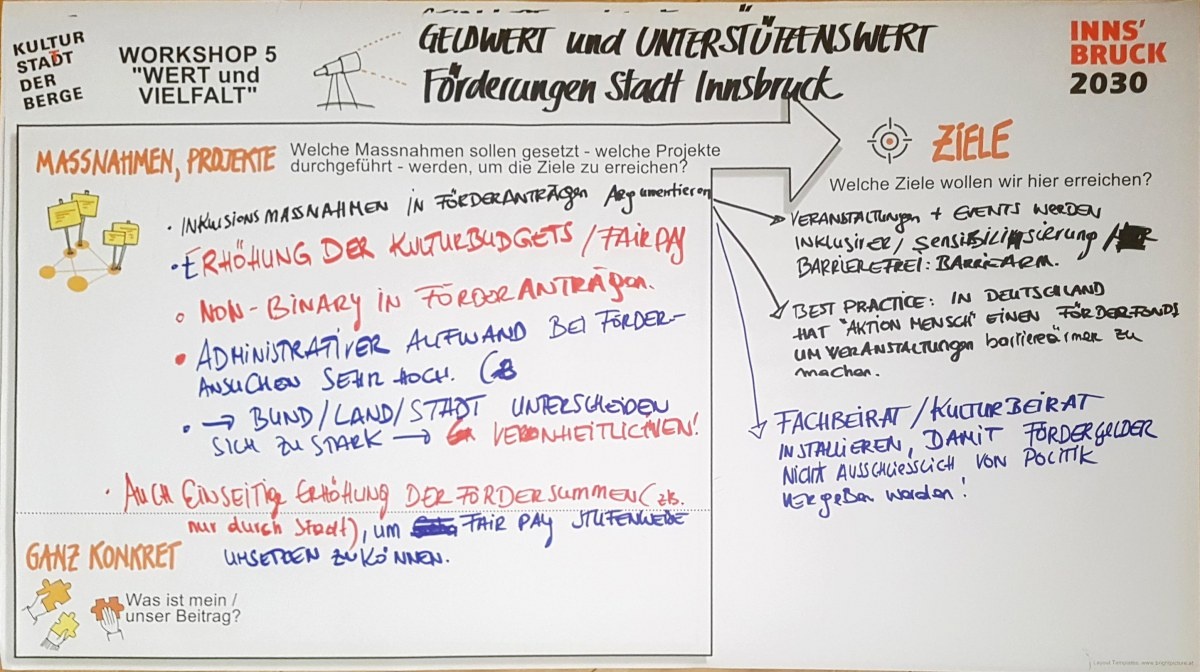 KULTUR
STADT
DER
BERGE
WORKSHOP 5
"WERT und
VIELFALT"
GELDWERT und UNTERSTÜTZENSWERT
Förderungen Stadt Innsbruck
INNS'
BRUCK
2030
MASSNAHMEN, PROJEKTE
Welche Massnahmen sollen gesetzt - welche Projekte
durchgeführt - werden, um die Ziele zu erreichen?
• INKLUSIONSMASSNAHMEN IN FÖRDERANTRÄGEN Argumentieren
• ERHÖHUNG DER KULTURBUDGETS / FAIR PAY
○ NON-BINARY IN FÖRDERANTRÄGEN.
• ADMINISTRATIVER AUFWAND BEI FÖRDER-
ANSUCHEN SEHR HOCH.
• → BUND/LAND/STADT UNTERSCHEIDEN
SICH ZU STARK → VEREINHEITLICHEN!
• AUCH EINSEITIGE ERHÖHUNG DER FÖRDERSUMMEN (zB.
nur durch Stadt), um FAIR PAY STUFENWEISE
UMSETZEN ZU KÖNNEN.
GANZ KONKRET
Was ist mein /
unser Beitrag?
ZIELE
Welche Ziele wollen wir hier erreichen?
VERANSTALTUNGEN + EVENTS WERDEN
INKLUSIVER / SENSIBILISIERUNG /
BARRIEREFREI: BARRIEARM.
BEST PRACTICE: IN DEUTSCHLAND
HAT "AKTION MENSCH" EINEN FÖRDERFONDS
UM VERANSTALTUNGEN barriereärmer zu
machen.
FACHBEIRAT / KULTURBEIRAT
INSTALLIEREN, DAMIT FÖRDERGELDER
NICHT AUSSCHLIESSLICH VON POLITIK
VERGEBEN WERDEN!
Layout Templates: www.brightpicture.at